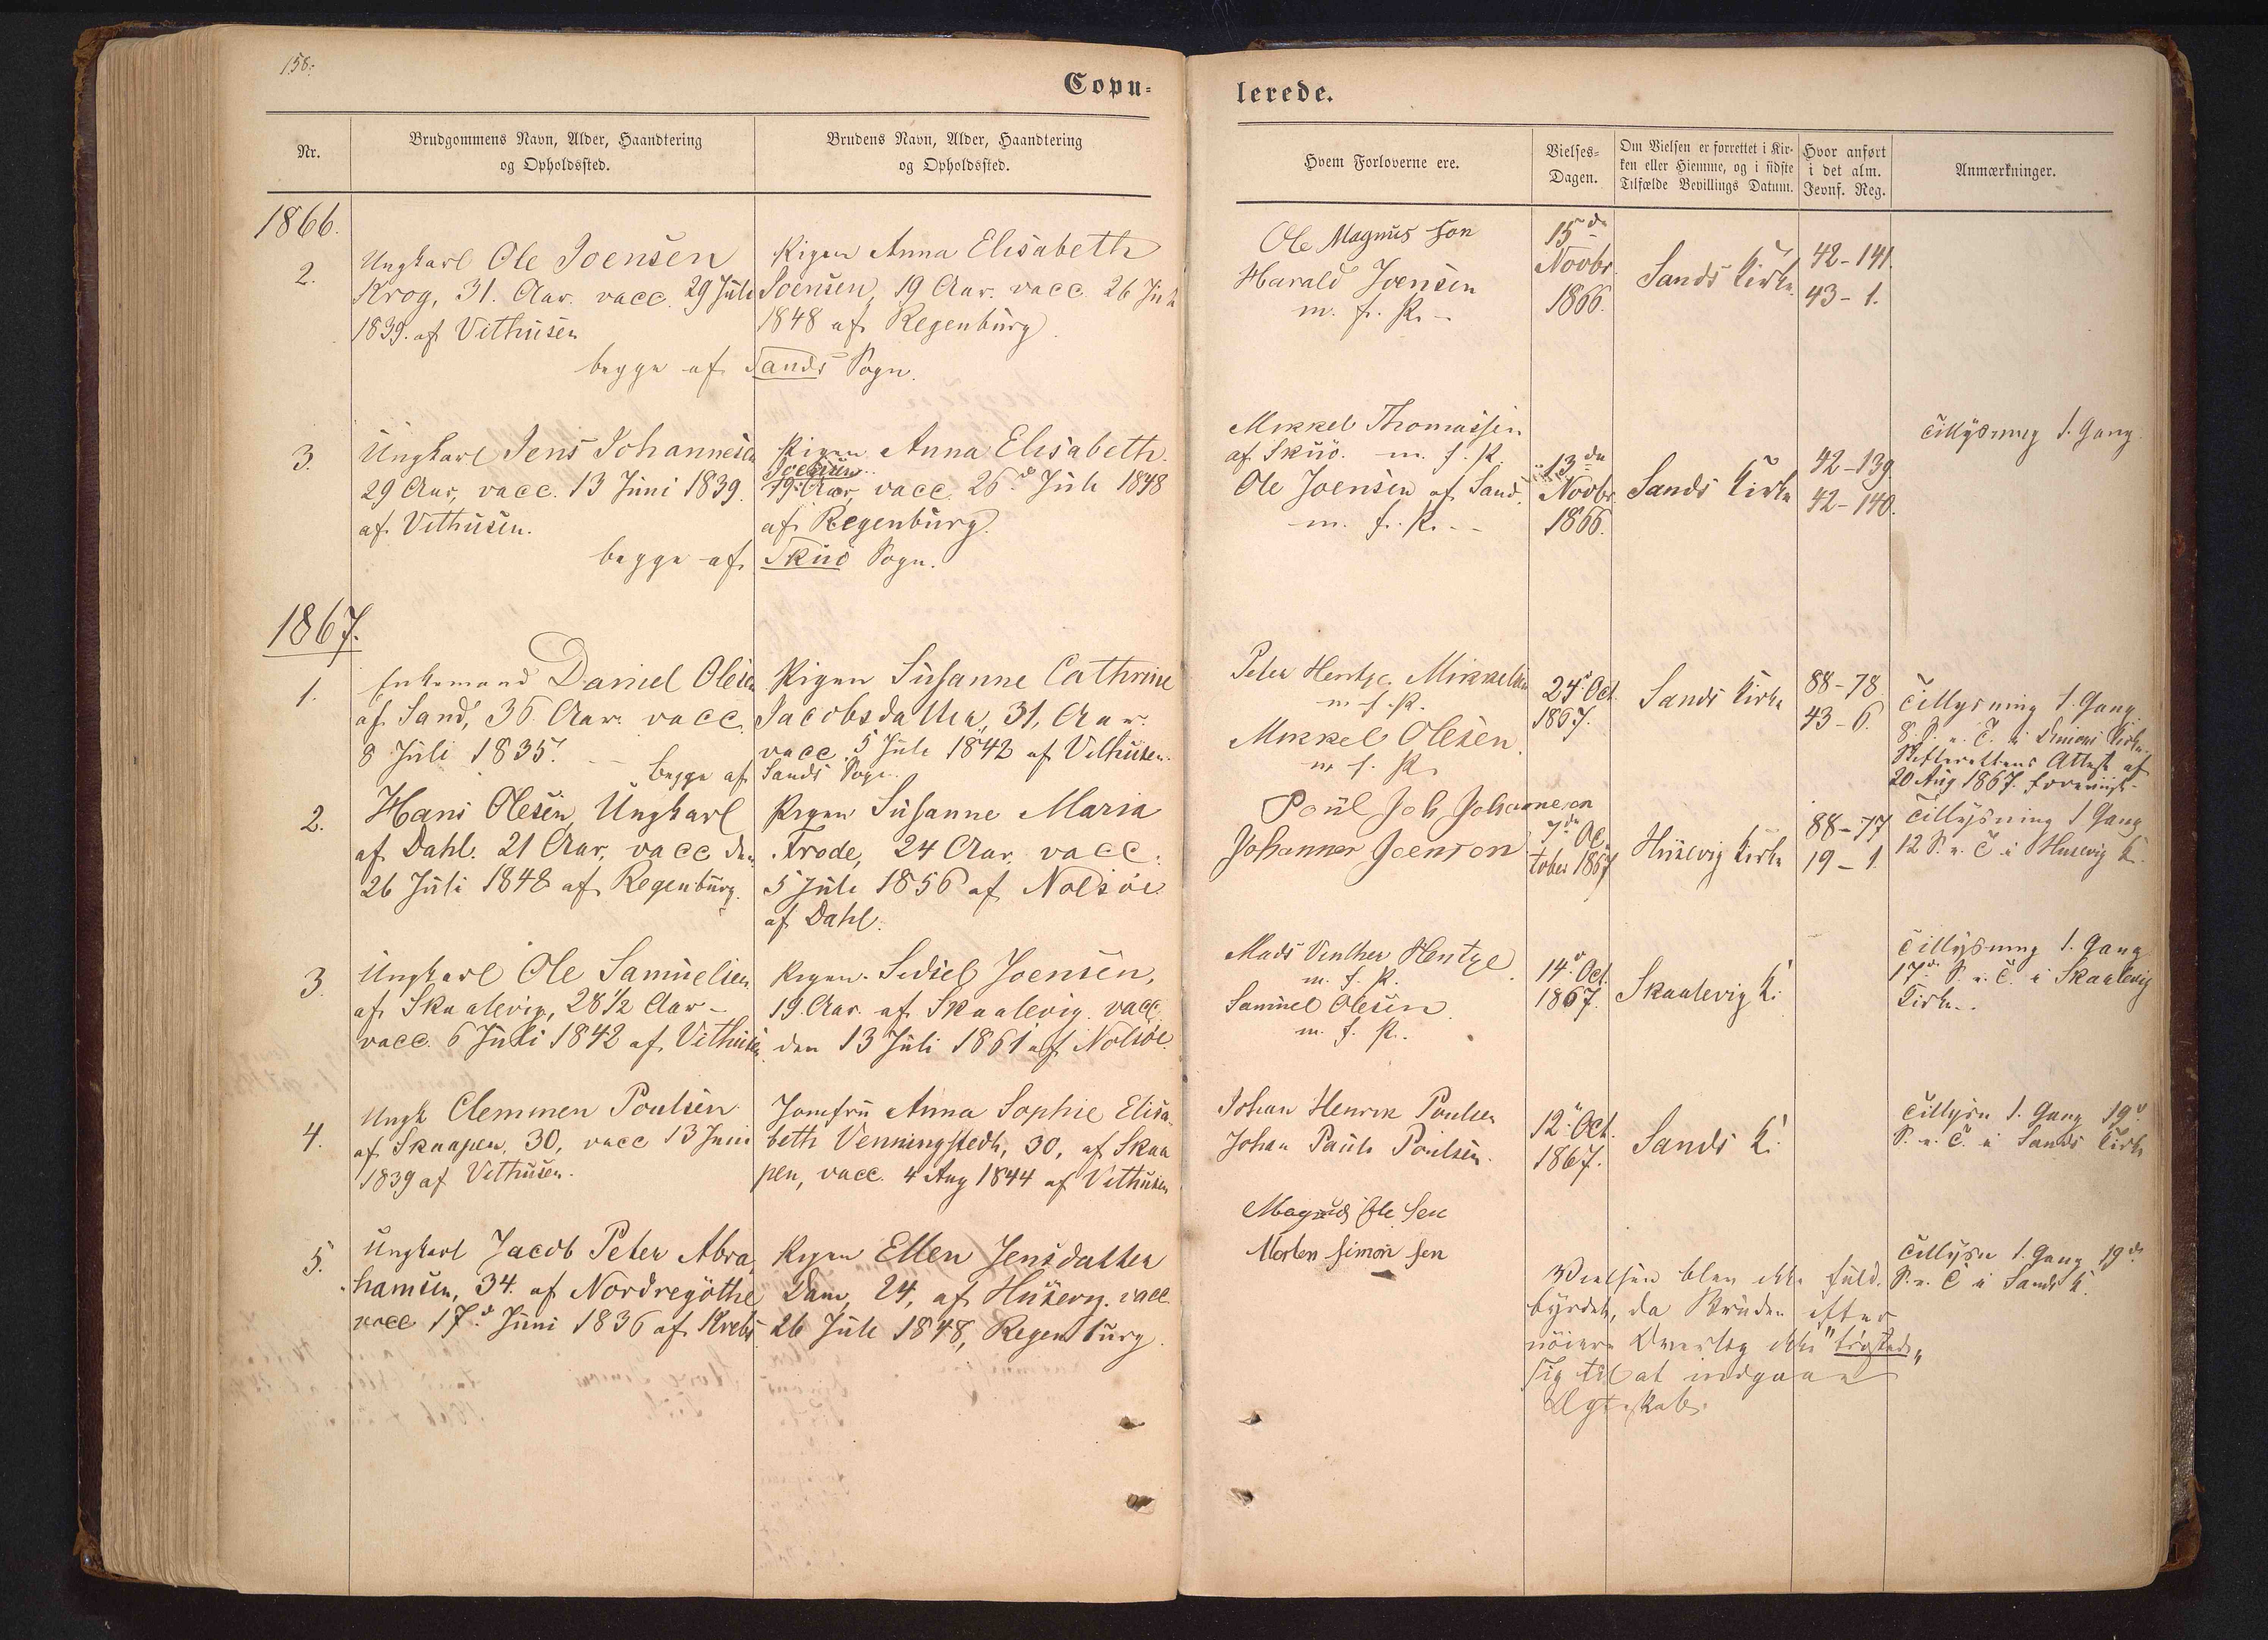 158.
Copu-
lerede.
Nr.
Brudgommens Navn, Alder, Haandtering
og Opholdssted.
Brudens Navn, Alder, Haandtering
og Opholdssted.
Hvem Forloverne ere.
Vielses-
Dagen.
Om Vielsen er forrettet i Kir-
ken eller Hiemme, og i sidste
Tilfælde Bevillings Datum.
Hvor anført
i det alm.
Jevnf. Reg.
Anmærkninger.
1866.
2.
Ungkarl Ole Joensen
Krog, 31. Aar. vacc. 29 Juli
1839. af Vithusen
Pigen Anna Elisabeth
Joensen, 19 Aar. vacc. 26 Juli
1848 af Regenburg.
begge af Sands Sogn.
Ole Magnus son
Harald Joensen
m. f. P.
15de
Novbr.
1866.
Sands Kirke
42-141.
43-1.
3.
Ungkarl Jens Johannesen
29 Aar, vacc. 13 Juni 1839.
af Vithusen.
Pigen Anna Elisabeth
Joensen
19 Aar, vacc. 26de Juli 1848
af Regenburg.
begge af Skuö Sogn.
Mikkel Thomassen
af Skuö. m. f. P.
Ole Joensen af Sand.
m. f. P.
13de
Novbr
1866.
Sands Kirke
42-139.
42-140.
Tillysning 1. Gang.
1867.
1.
Enkemand Daniel Olesen
af Sand, 36. Aar. vacc.
8 Juli 1835.
Pigen Susanne Cathrine
Jacobsdatter, 31, Aar.
vacc. 5 Juli 1842 af Vithusen.
begge af Sands Sogn.
Peter Hentze Mikkelsen
m. f. P.
Mikkel Olesen.
m. f. P.
24de Oct.
1867.
Sands Kirke
88-78.
43-6.
Tillysning 1. Gang.
8. S. e. T. i Kirke.
Skifterettens Attest af
20 Aug 1867.
2.
Hans Olesen, Ungkarl
af Dahl. 21 Aar, vacc den
26 Juli 1848 af Regenburg.
Pigen Susanne Maria
Frode, 24 Aar. vacc.
5 Juli 1856 af Nolsöe
af Dahl.
Poul Joh Johannesen
Johannes Joenson
7de Oc-
tober 1867
Husevig Kirke
88-77
19-1.
Tillysning 1 Gang
12 S. e. T. i Husevig K.
3.
Ungkarl Ole Samuelsen
af Skaalevig, 28 1/2 Aar -
vacc. 6 Juli 1842 af Vithusen
Pigen Sidsel Joensen,
19. Aar. af Skaalevig. vacc.
den 13 Juli 1861 af Nolsöe.
Mads Vinther Hentze.
m. f. P.
Samuel Olesen.
m. f. P.
14de Oct.
1867.
Skaalevig K.
Tillysning 1. Gang
17de S. e. T. i Skaalevig
Kirke.
4.
Ungk Clemmen Poulsen
af Skaapen, 30, vacc 13 Juni
1839 af Vithusen.
Jomfru Anna Sophie Elisa-
beth Venningstedt, 30, af Skaa
pen, vacc. 4 Aug 1844 af Vithusen
Johan Henrik Poulsen
Johan Pauli Poulsen.
12te Oct.
1867.
Sands K.
Tillysn 1. Gang 19de
S. e. T. i Sands Kirke
5.
Ungkarl Jacob Peter Abra-
hamsen, 34. af Nordregöthe
vacc 17de Juni 1836 af Krebs
Pigen Ellen Jensdatter
Dam, 24, af Husevig. vacc.
26 Juli 1848, Regenburg.
Magnus Ole Sen
Morten Simon sen
Vielsen blev ikke fuld-
byrdet, da Bruden efter
nöiere Overlæg ikke "tröstede"
sig til at indgaae
Ægteskab.
Tillysn 1. Gang 19de
S. e. T. i Sands K.